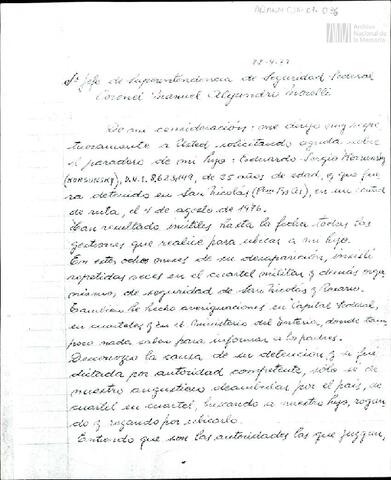 Archivo
Nacional de
la Memoria
22-4-77
Sr Jefe de Superintendencia de Seguridad Federal
Coronel Manuel Alejandro Morelli
De mi consideración: me dirijo muy respe
tuosamente a Usted solicitando ayuda sobre
el paradero de mi hijo: Eduardo Sergio Korsunsky
(KORSUNSKY), D.N.I. 8.623.149, de 25 años de edad, el que fue
ra detenido en San Nicolás (Pcia Bs As), en un control
de ruta, el 4 de agosto de 1976.
Han resultado inútiles hasta la fecha todas las
gestiones que realicé para ubicar a mi hijo.
En estos ochos meses de su desaparición, insistí
repetidas veces en el cuartel militar y demás orga
nismos, de seguridad de San Nicolás y Rosario.
Tambien he hecho averiguaciones en Capital Federal,
en cuarteles y en el Ministerio del Interior, donde tam
poco nada saben para informar a los padres.
Desconozco la causa de su detención, y si fué
dictada por autoridad competente, sólo sé de
nuestro angustioso deambular por el país, de
cuartel en cuartel, buscando a nuestro hijo, rogan
do y rogando por ubicarlo.
Entiendo que son las autoridades las que juzgan,